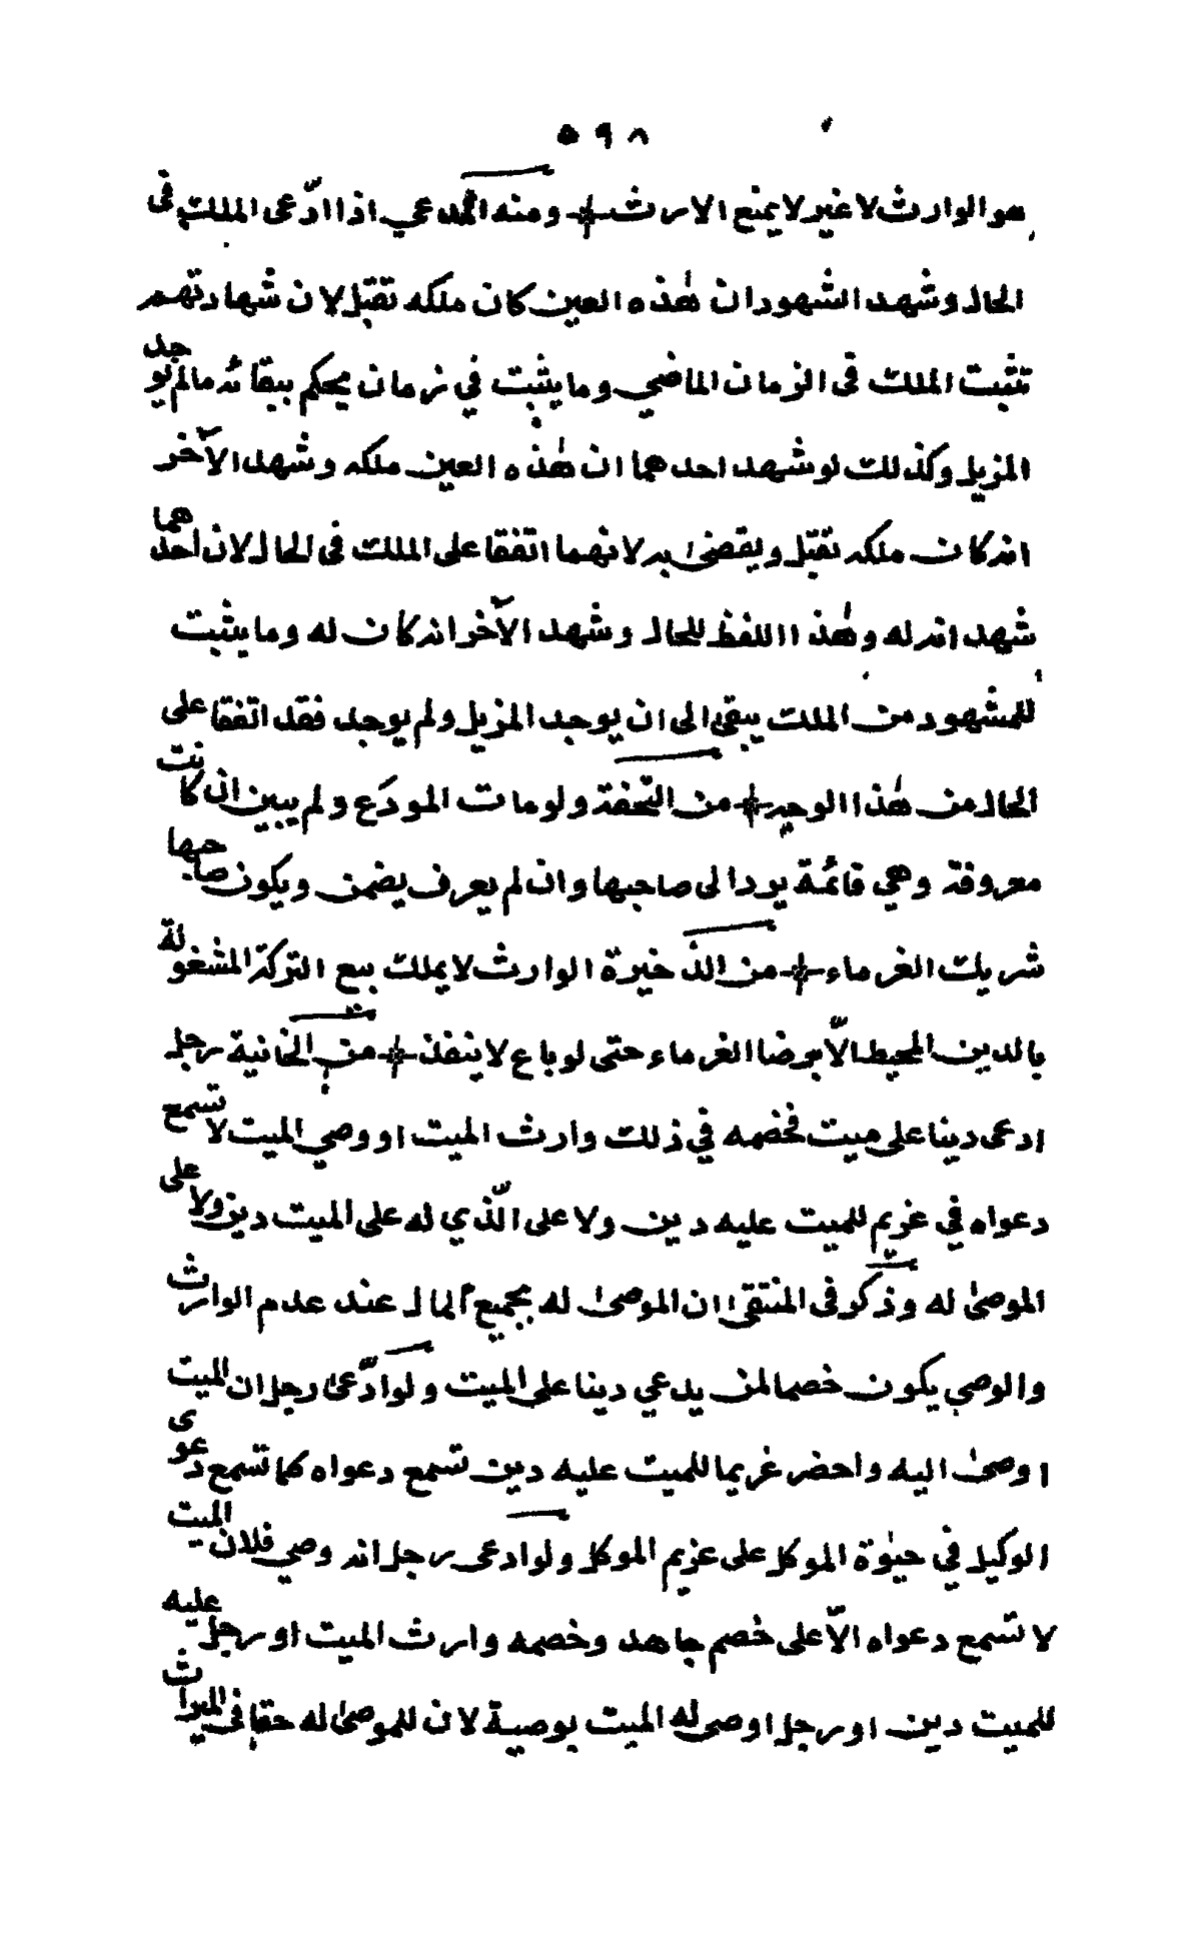 ٥٩٨
هو الوارث لا غير لا يمنع الارث ومنه المدعي اذا ادّعى الملك فى
الحال وشهد الشهود ان هٰذه العين كان ملكه تقبل لان شهادتهم
تثبت الملك فى الزمان الماضي وما يثبت في زمان يحكم ببقائه مالم يوجد
المزيل وكذلك لو شهد احدهما ان هٰذه العين ملكه وشهد الآخر
انه كان ملكه تقبل ويقضىٰ به لانهما اتفقا على الملك فى الحال لان احدهما
شهد انه له وهٰذا اللفظ للحال وشهد الآخر انه كان له وما يثبت
للمشهود من الملك يبقىٰ الى ان يوجد المزيل ولم يوجد فقد اتفقا على
الحال من هٰذا الوجه من التحفة ولو مات المودَع ولم يبين ان كانت
معروفة وهي قائمة يرد الى صاحبها وان لم يعرف يضمن ويكون صاحبها
شريك الغرماء من الذخيرة الوارث لا يملك بيع التركة المشغولة
بالدين المحيط الّا برضا الغرماء حتى لو باع لا ينفذ من الخانية رجل
ادعى دينا على ميت فخصمه في ذلك وارث الميت او وصي الميت لا تسمع
دعواه في غريم للميت عليه دين ولا على الّذي له على الميت دين ولا على
الموصىٰ له وذكر فى المنتقىٰ ان الموصىٰ له بجميع المال عند عدم الوارث
والوصي يكون خصما لمن يدعي دينا على الميت ولو ادّعىٰ رجل ان الميت
اوصىٰ اليه واحضر غريما للميت عليه دين تسمع دعواه كما تسمع دعوى
الوكيل في حيٰوة الموكل على غريم الموكل ولو ادعى رجل انه وصي فلان الميت
لا تسمع دعواه الّا على خصم جاهد وخصمه وارث الميت او رجل عليه
للميت دين او رجل اوصى له الميت بوصية لان للموصىٰ له حقا فى الميراث